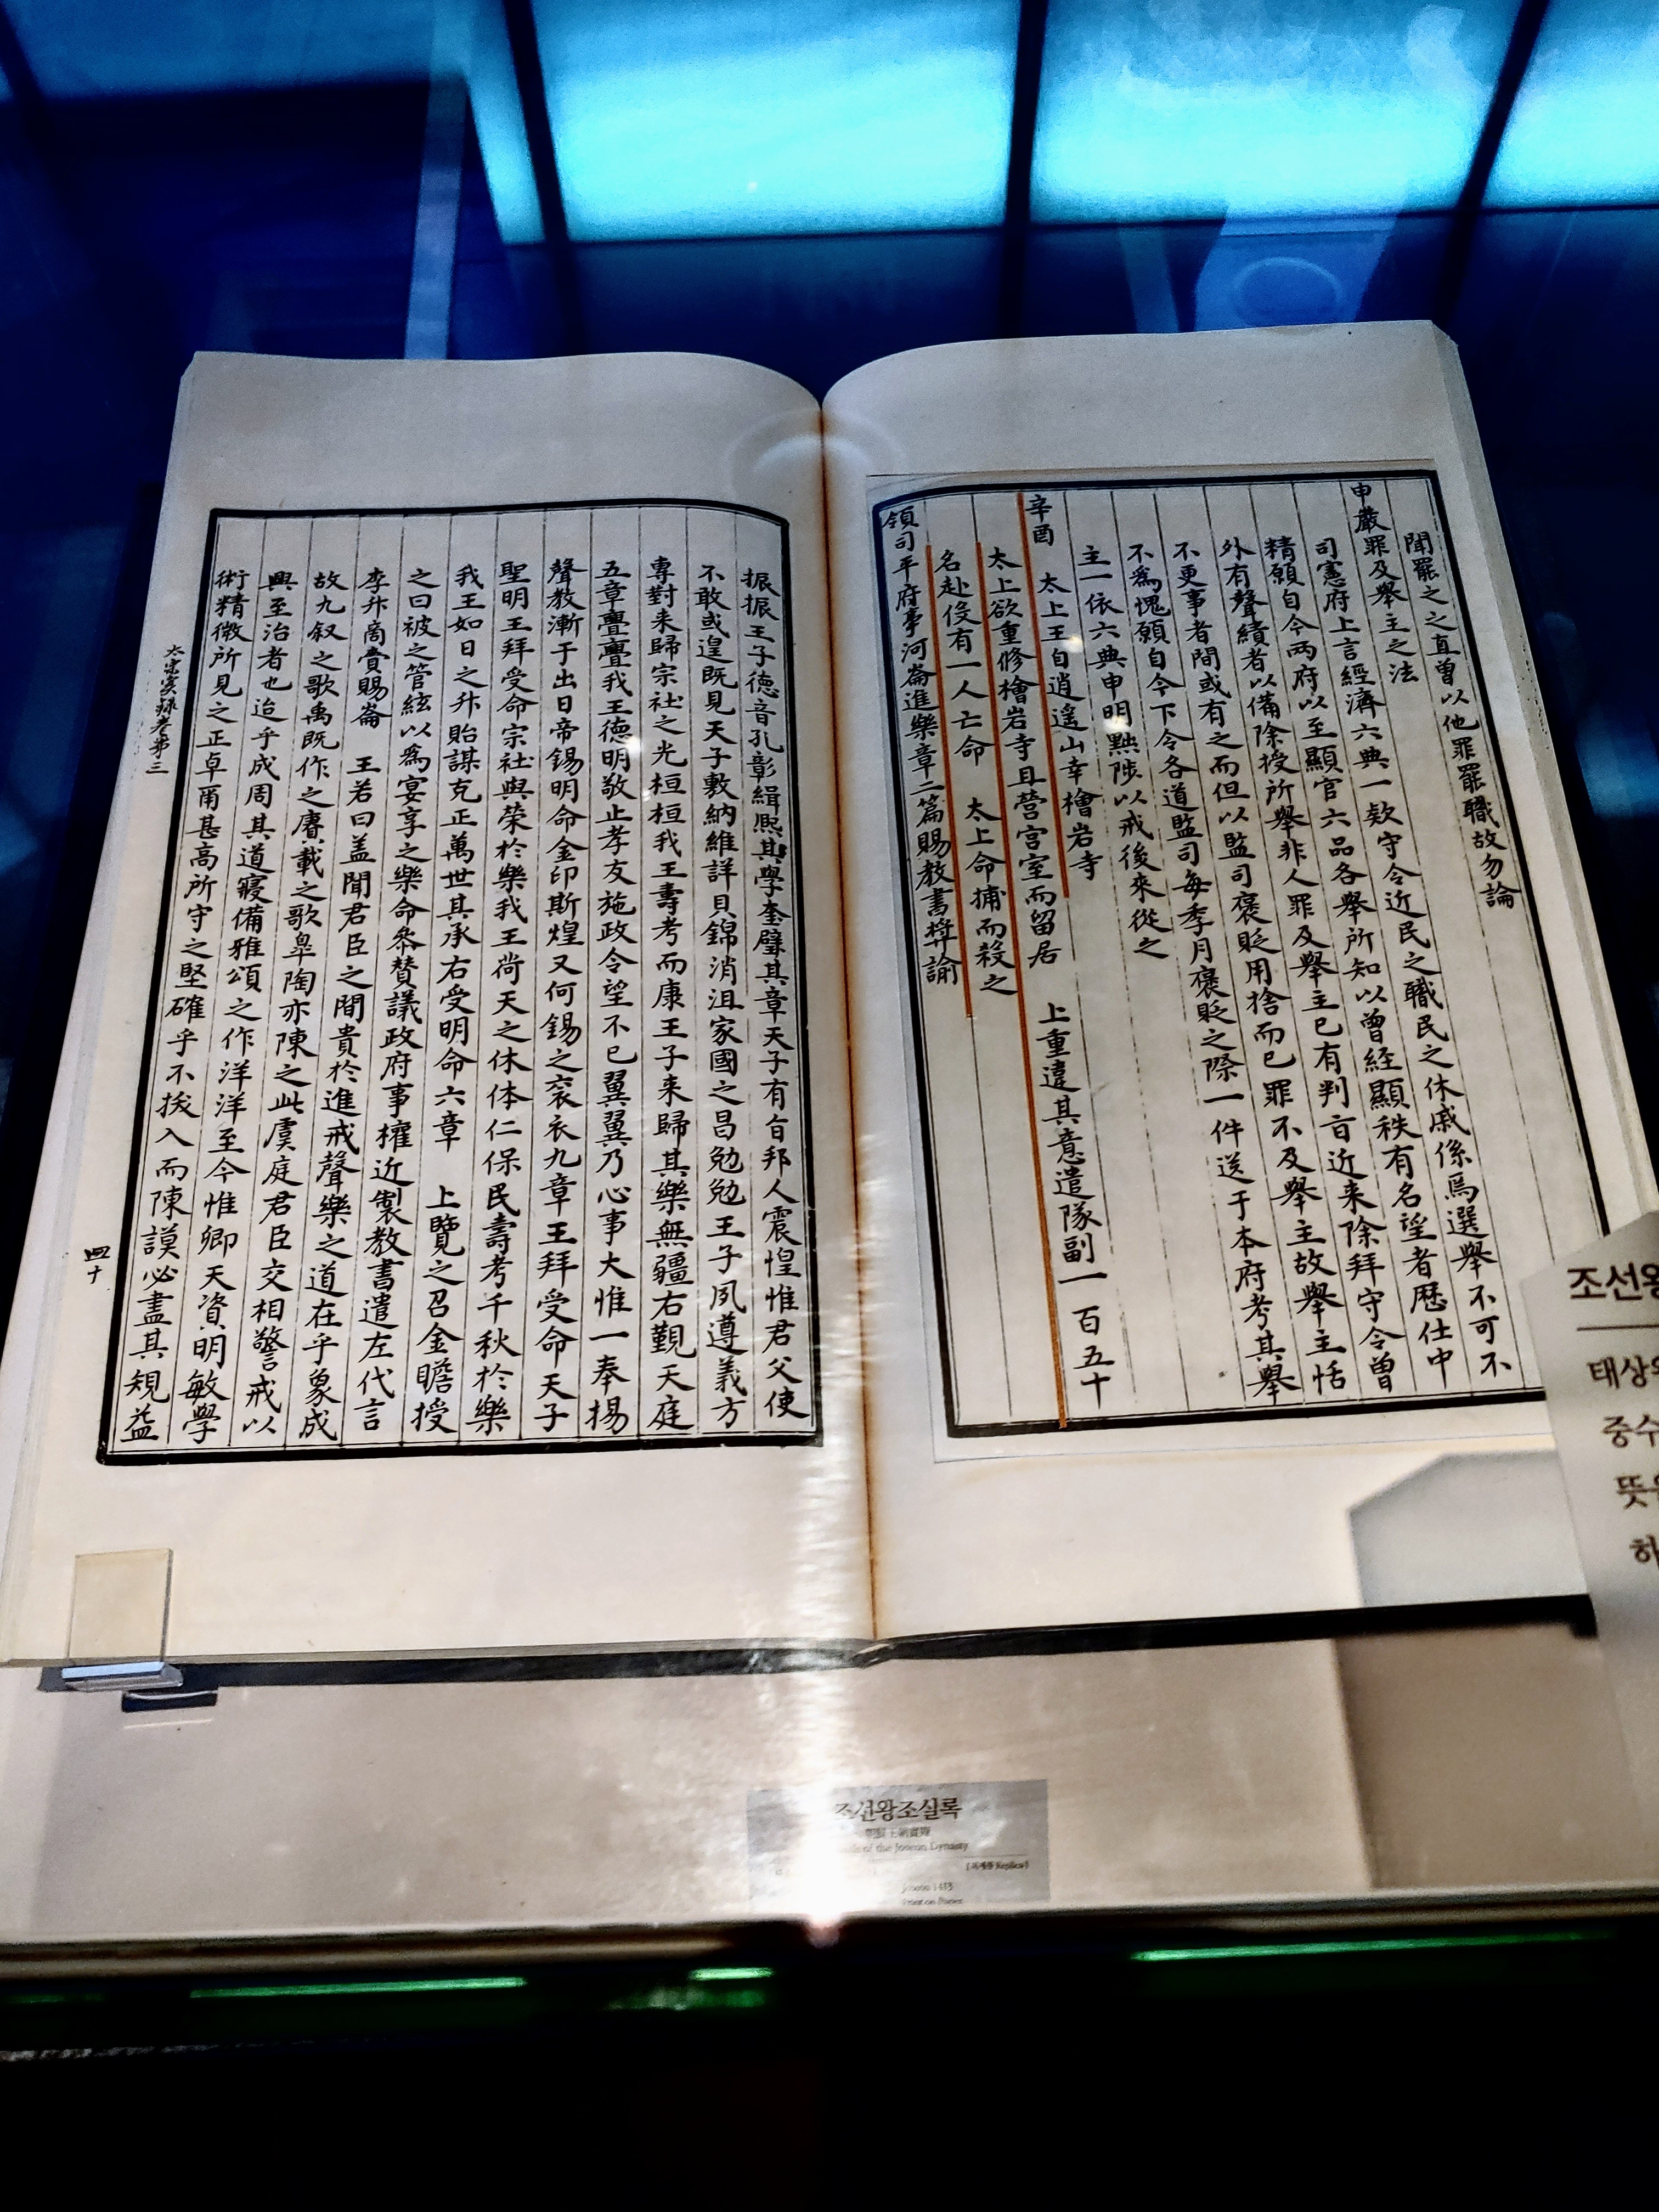 聞罷之之直曾以他罪罷職故勿論
申嚴罪及舉主之法
司憲府上言經濟六典一欵守令近民之職民之休戚係焉選舉不可不
精願自今兩府以至顯官六品各舉所知以曾經顯秩有名望者歷仕中
外有聲績者以備除授所舉非人罪及舉主已有判旨近来除拜守令曾
不更事者間或有之而但以監司褒貶用捨而已罪不及舉主故舉主恬
不爲愧願自今下令各道監司每季月褒貶之際一件送于本府考其舉
主一依六典申明黜陟以戒後來從之
辛酉 太上王自逍遥山幸檜岩寺
太上欲重修檜岩寺且营宫室而留居 上重違其意遣隊副一百五十
名赴役有一人亡命 太上命捕而殺之
領司平府事河崙進樂章二篇賜教書奨諭
振振王子德音孔彰緝熙其學奎璧其章天子有旨邦人震惶惟君父使
不敢或遑既見天子敷納維詳貝錦消沮家國之昌勉勉王子夙遵義方
專對来歸宗社之光桓桓我王壽考而康王子来歸其樂無疆右覲天庭
五章亹亹我王德明敬止孝友施政令望不已翼翼乃心事大惟一奉揚
聲教漸于出日帝錫明命金印斯煌又何錫之衮衣九章王拜受命天子
聖明王拜受命宗社與荣於樂我王尚天之休体仁保民壽考千秋於樂
我王如日之升貽謀克正萬世其承右受明命六章 上覽之召金瞻授
之曰被之管絃以爲宴享之樂命叅賛議政府事權近製教書遣左代言
李升商賫賜崙 王若曰盖聞君臣之間貴於進戒聲樂之道在乎象成
故九叙之歌禹既作之賡載之歌皐陶亦陳之此虞庭君臣交相警戒以
興至治者也迨乎成周其道寝備雅頌之作洋洋至今惟卿天資明敏學
術精微所見之正卓甭甚高所守之堅確乎不拔入而陳謨必盡其規益
太宗実录卷第三
四十
조선왕
태상왕
중수
뜻을
하
조선왕조실록
of the Joseon Dynasty
[복제품 Replica]
Joseon 1413
Print on Paper